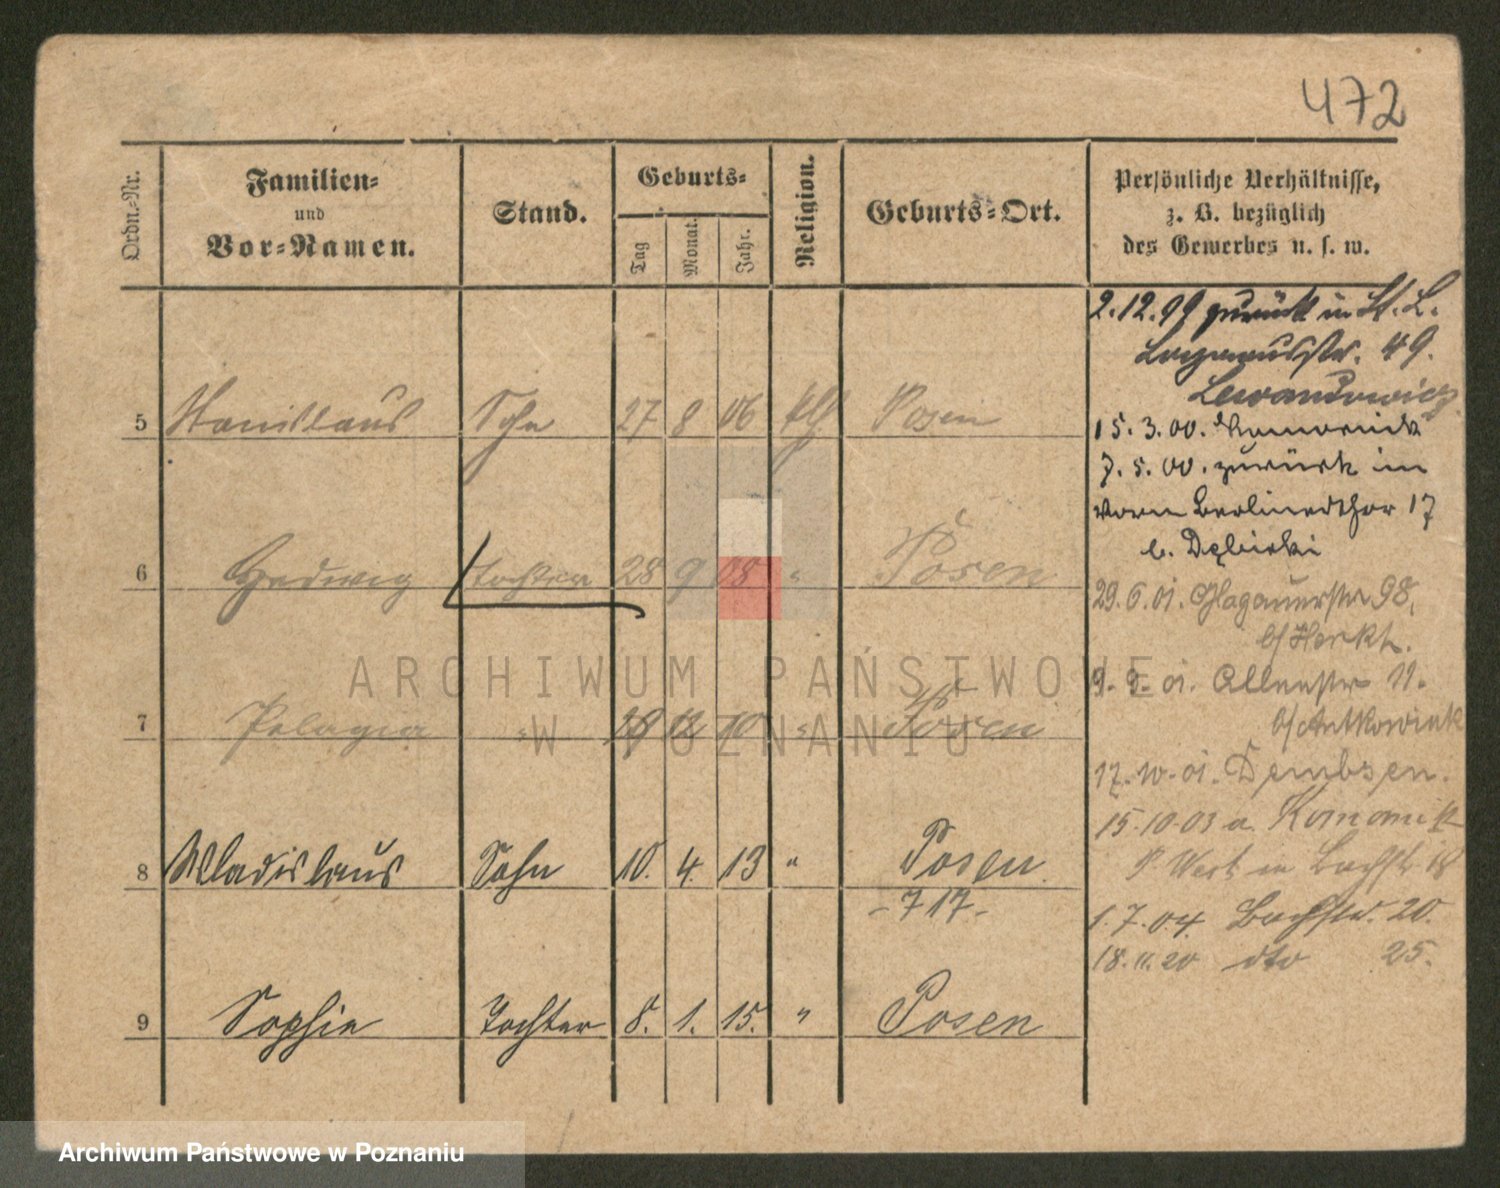 472
Ordn.-Nr.
Familien-
und
Vor-Namen.
Stand.
Geburts-
Tag
Monat.
Jahr.
Religion.
Geburts-Ort.
Persönliche Verhältnisse,
z. B. bezüglich
des Gewerbes u. s. w.
5 Stanislaus Sohn 27 8 06 kth Posen
6 Hedwig Tochter 28 9 08 " Posen
7 Pelagia " 12 10 " Posen
8 Wladislaus Sohn 10. 4. 13 " Posen.
- 717 -
9 Sophie Tochter 8. 1. 15. " Posen
2.12.99 zurück in St. L.
49.
Lewandowicz
15. 3. 00. Komornik
7. 5. 00. zurück in
vorm Berlinerthor 17
b. Dębicki
29. 6. 01. Glogauerstr 98,
b/ Herkt.
9. 9. 01. Allenstr 11.
b/ Antkowiak
17. 10. 01. Dembsen.
15.10.03 a. Komornik
Bachstr 18
1. 7. 04. Bachstr. 20.
18.11.20 dto 25.
ARCHIWUM PAŃSTWOWE
W POZNANIU
Archiwum Państwowe w Poznaniu